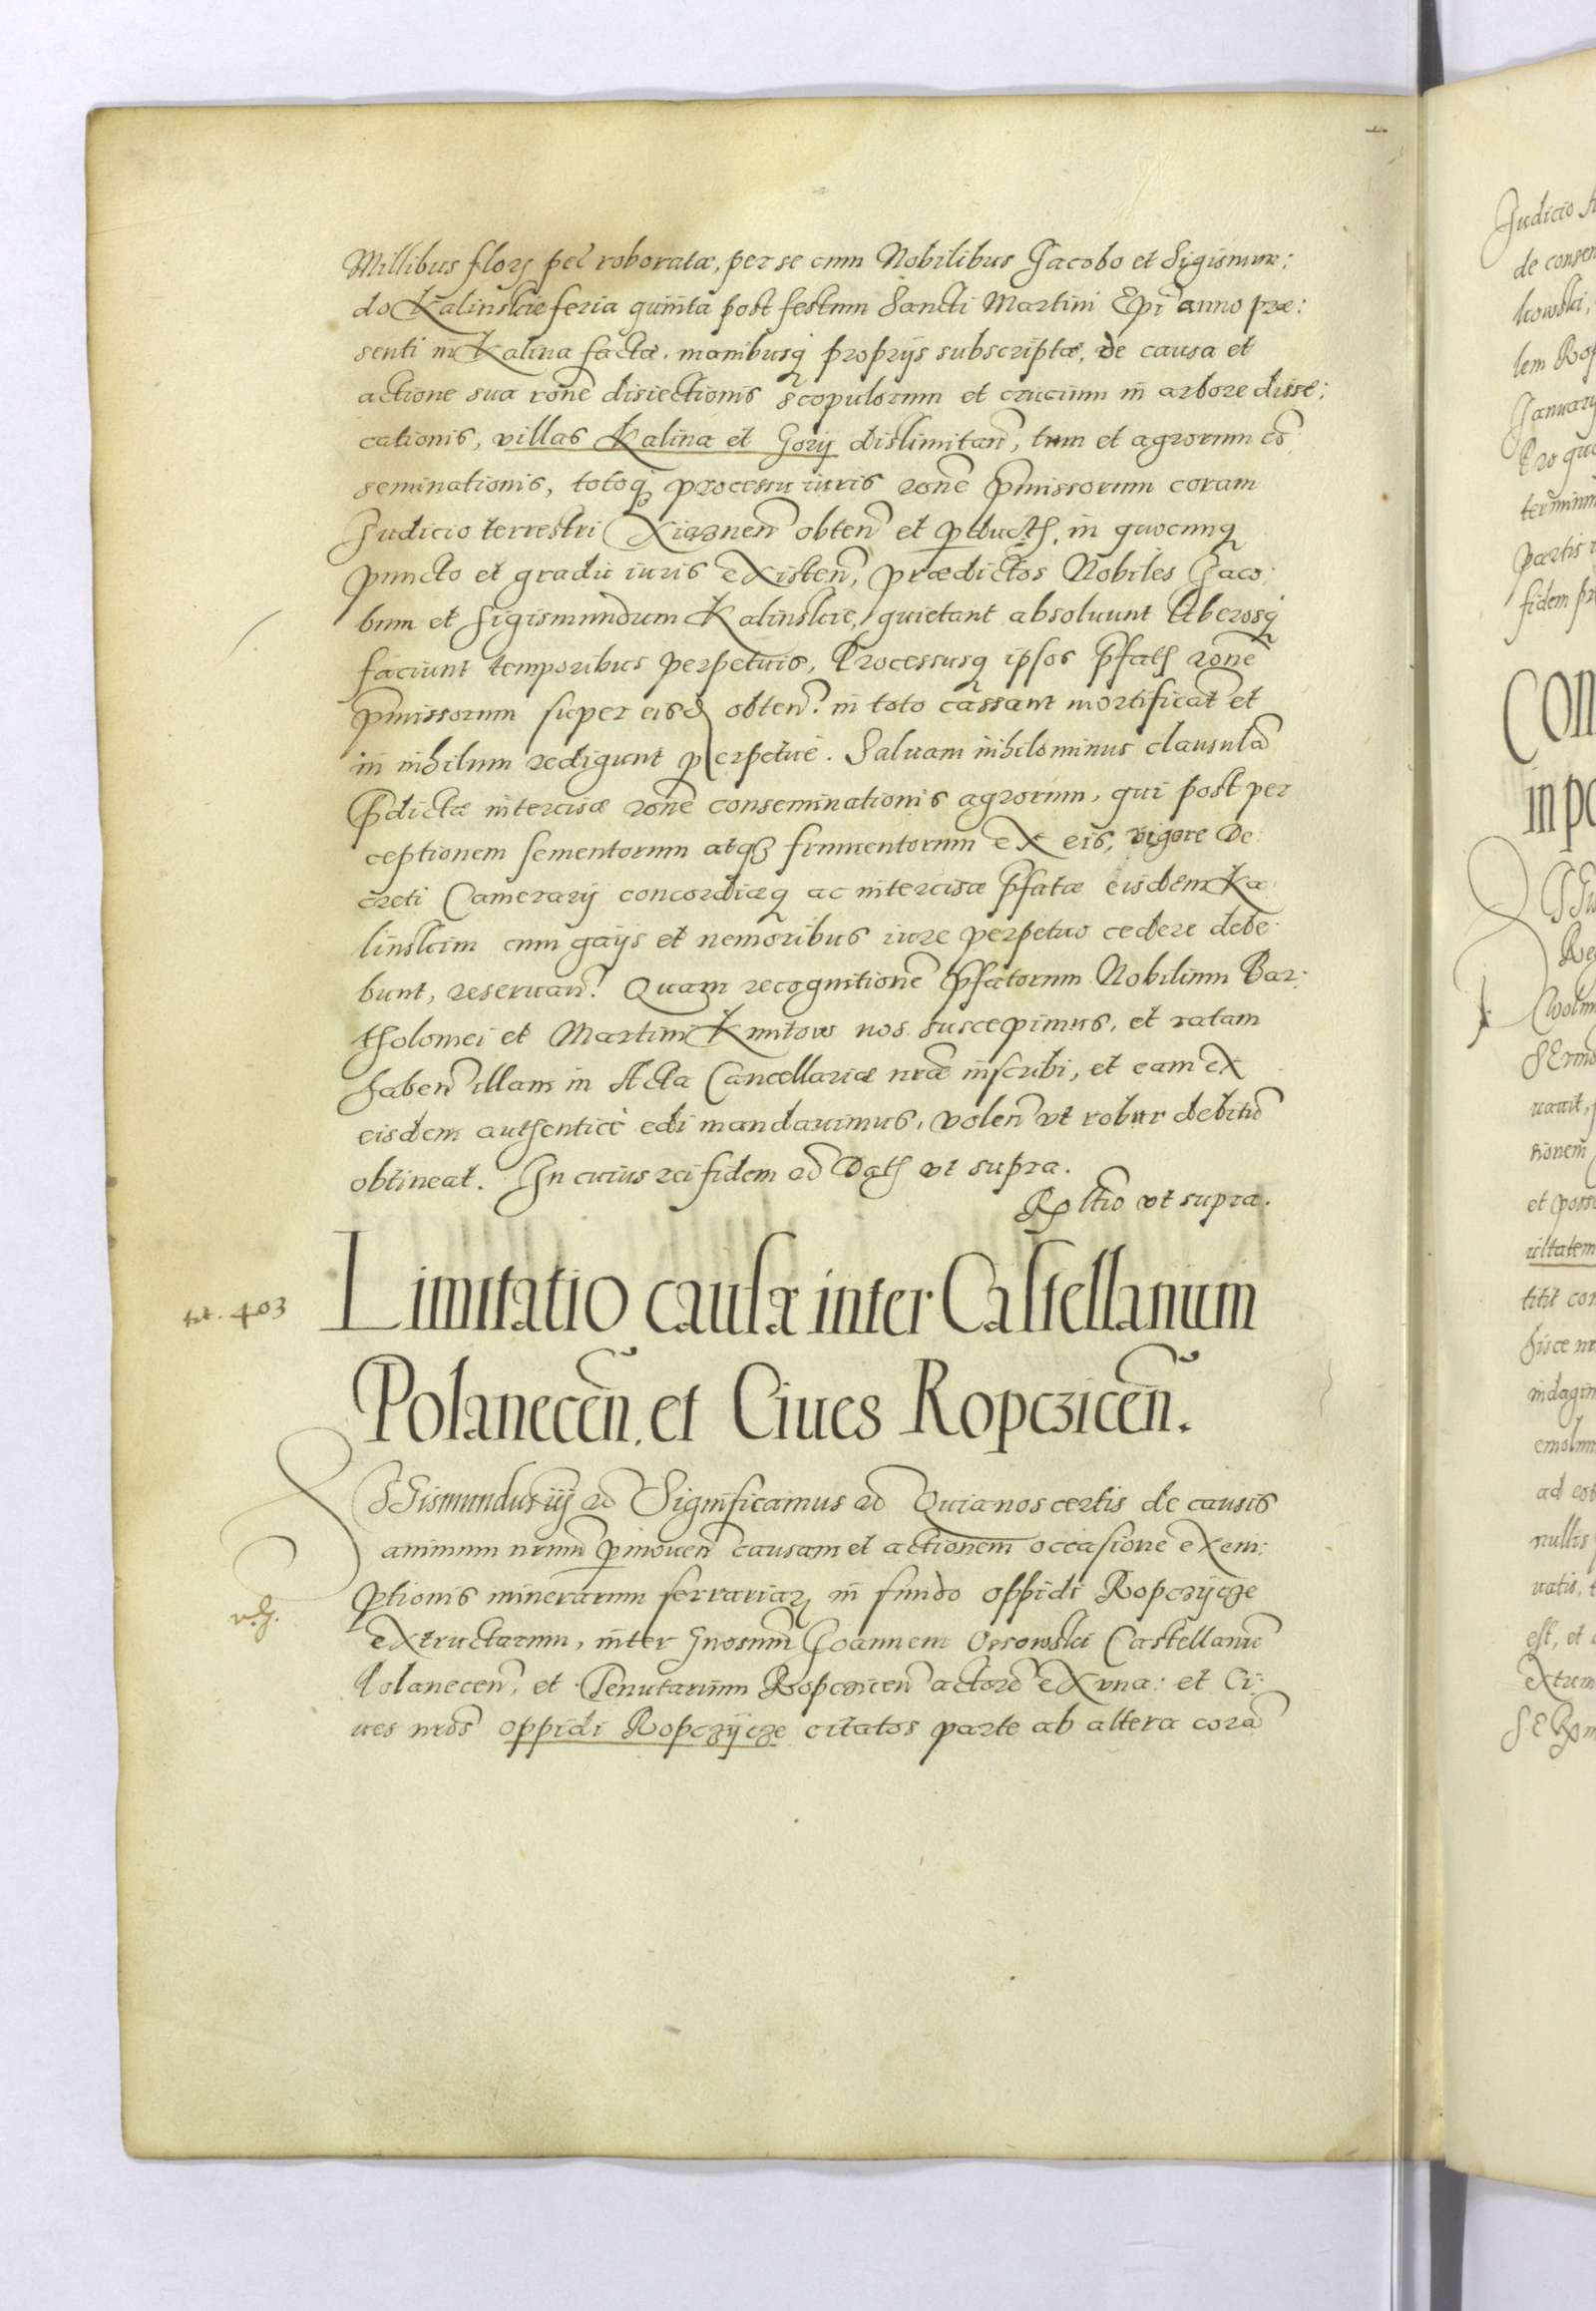 Millibus florʒ pel roboratæ, per se cum Nobilibus Jacobo et Sigismun:
do Kalinskie feria quinta post festum Sancti Martini Epi anno præ:
senti in Kalina factæ. manibusq proprijs subscriptæ, de causa et
actione sua rone disiectionis scopulorum et crucium in arbore disse:
cationis, villas Kalina et Gorij dislimitan, tum et agrorum co:
seminationis, totoq processu iuris rone pmissorum coram
Judicio terrestri Xiaznen obten et pducth, in quocunq
puncto et gradu iuris existen, prædictos Nobiles Jaco:
bum et Sigismundum Kalinskie, quietant absoluunt liberosq
faciunt temporibus perpetuis, Processusq ipsos pfath rone
pmissorum super eisd obten. in toto cassant mortificat et
in nihilum redigunt perpetue. Saluam nihilominus clausula
pdictæ intercisæ rone conseminationis agrorum, qui post per
ceptionem sementorum atqʒ frumentorum ex eis, vigore De:
creti Camerarij concordiæq ac intercisæ pfatæ eisdem Ka:
linskim cum gaijs et nemoribus iure perpetuo cedere debe:
bunt, reseruan. Quam recognitione pfatorum Nobilium Bar:
tholomei et Martini Kmitow nos suscepimus, et ratam
haben illam in Acta Cancellariæ nræ inscribi, et eam ex
eisdem authentice edi mandauimus, volen vt robur debitu
obtineat. In cuius rei fidem ac Dath vt supra.
Rltio vt supra.
tit. 403
Limitatio causæ inter Castellanum
Polanecen. et Ciues Ropczicen.
SGismundus iij ac Significamus ac Quia nos certis de causis
animum nrum pmouen causam et actionem occasione exem:
ptionis minerarum ferrariaʒ in fundo oppidi Ropczijcze
extructarum, inter Gnosum Joannem Ossowski Castellanu
Polanecen, et Tenutarium Ropczicen actore ex vna: et Ci:
ues nros oppidi Ropczijcze citatos parte ab altera cora